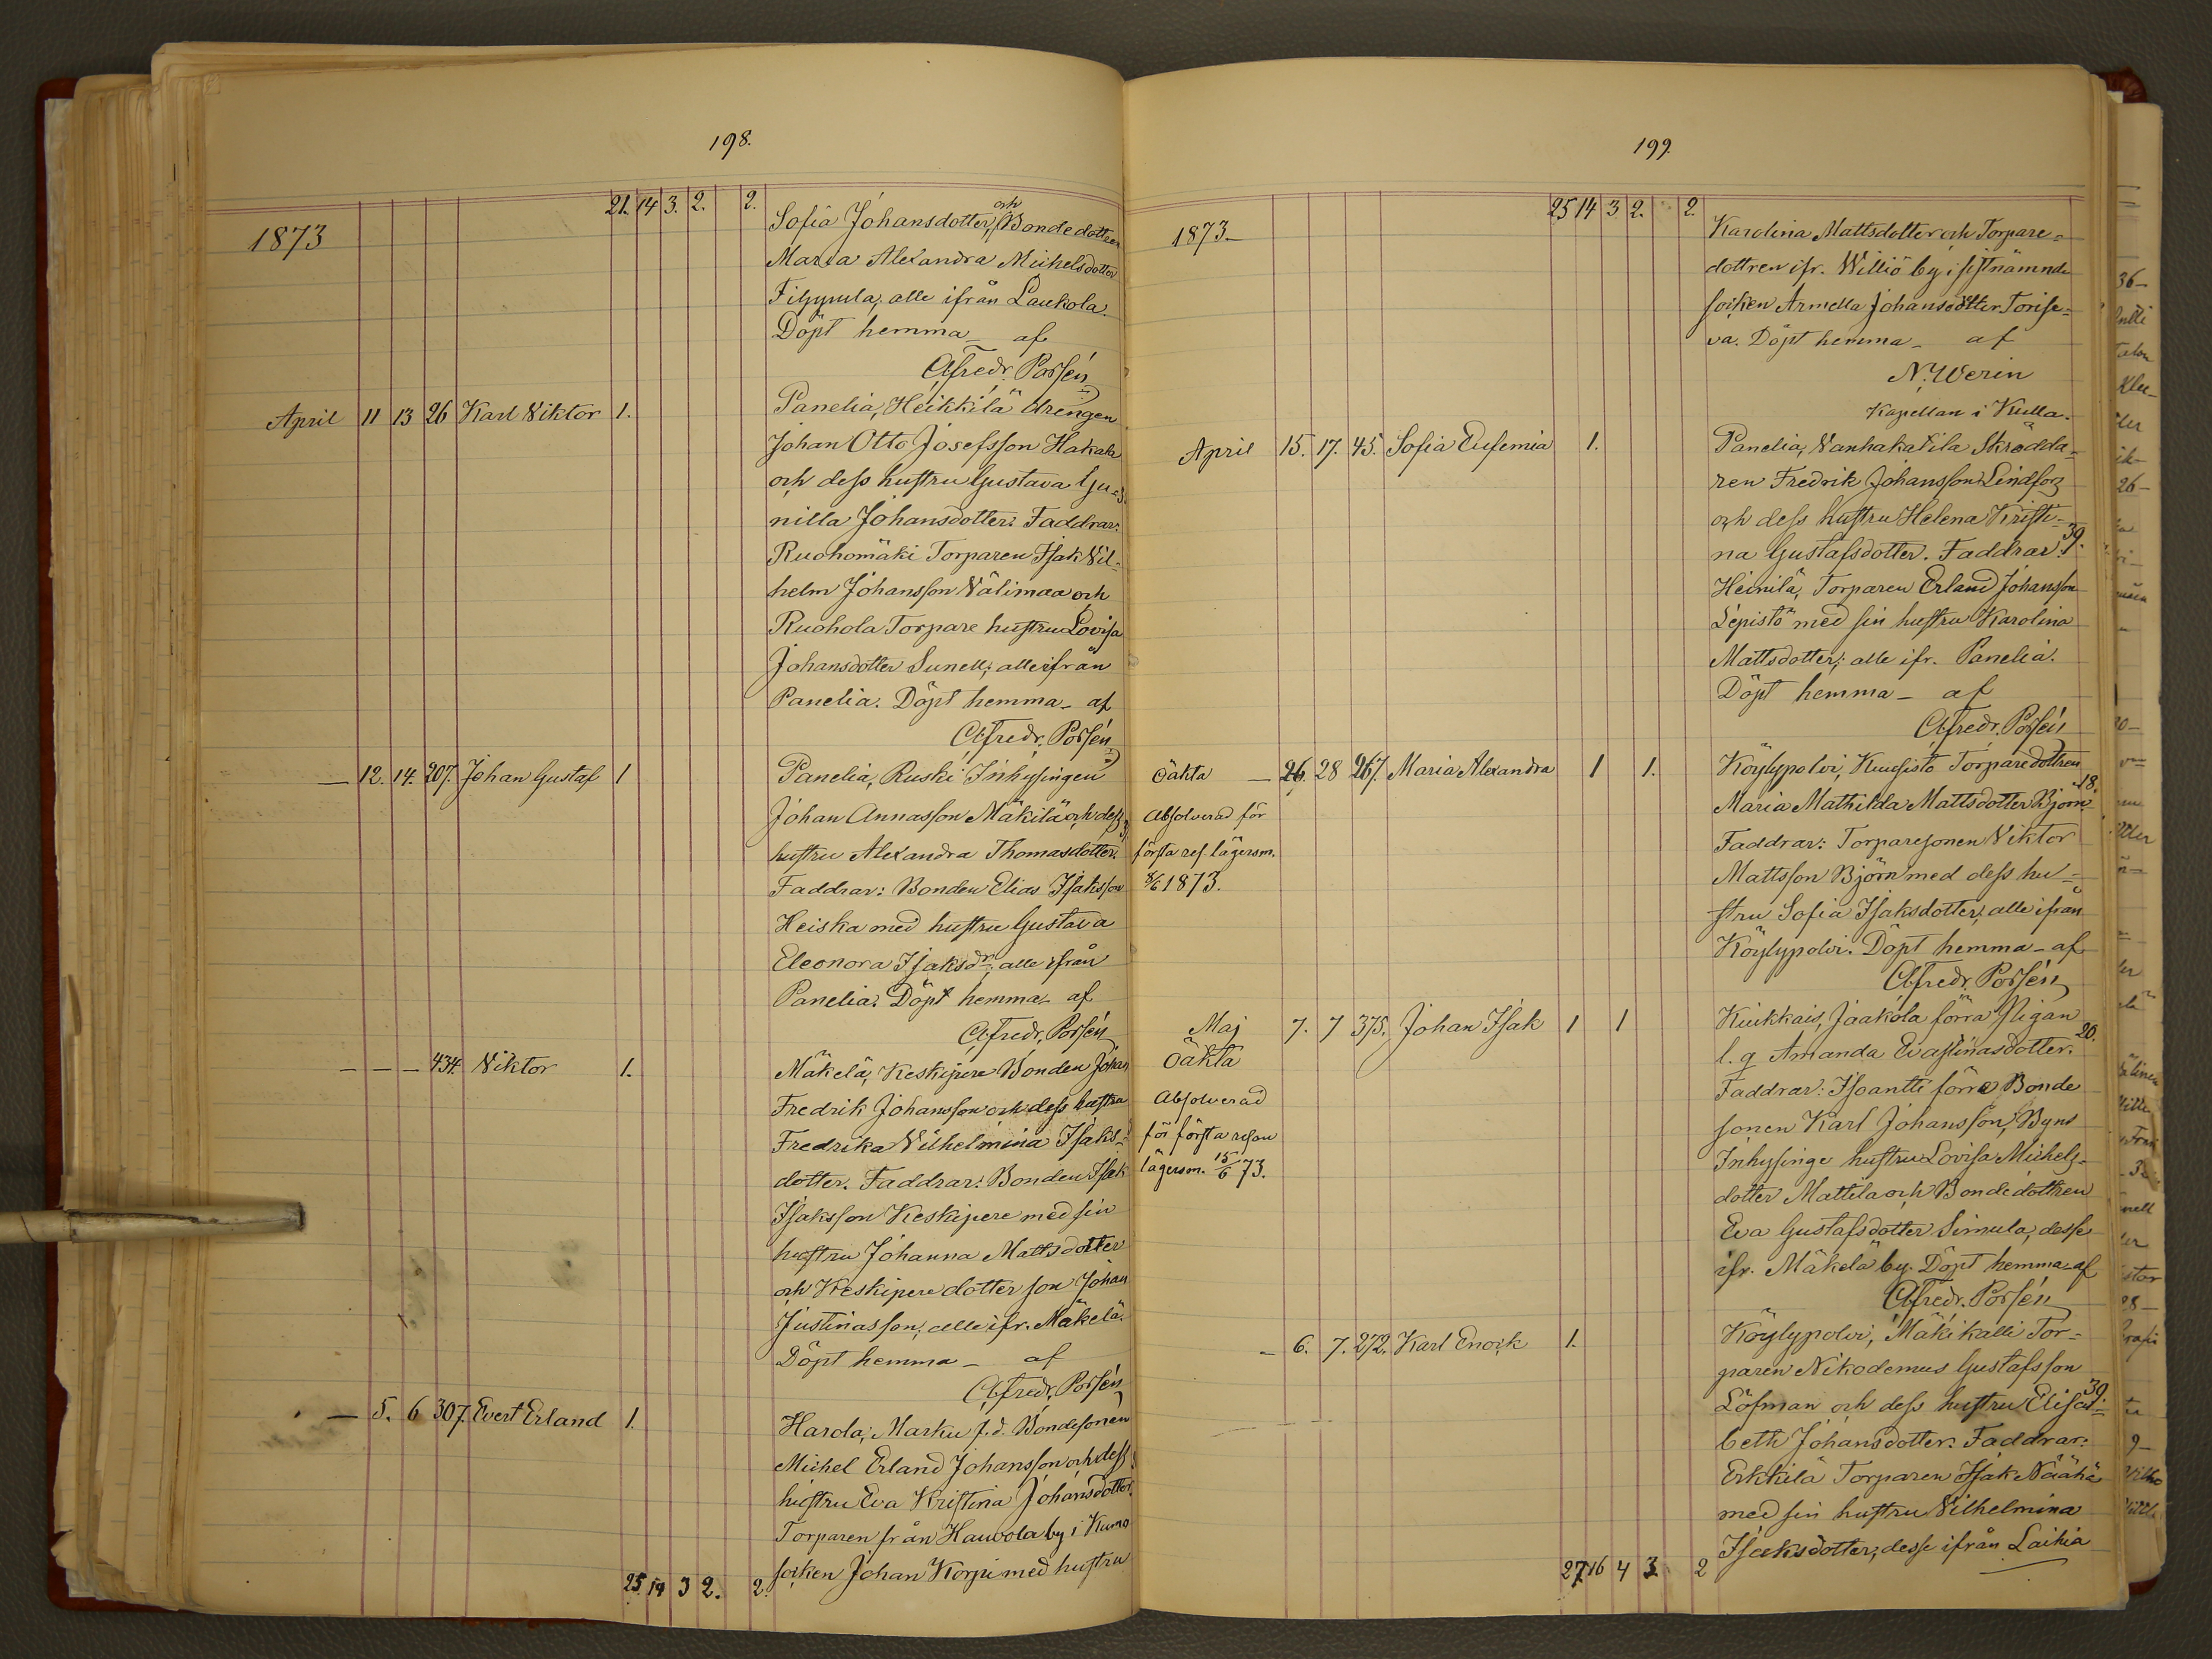 198.
21. 14 3. 2. 2.
1873
Sofia Johansdotter, och Bondedottren
Maria Alexandra Michelsdotter
Filppula, alle ifrån Laukola.
Döpt hemma _ af
Afredr. Porsén
April 11 13 26 Karl Viktor 1. Panelia, Heikkilä Drengen
Johan Otto Josefsson Hakala
och dess hustru Gustava Gu-
nilla Johansdotter. Faddrar:
Ruohomäki Torparen Isak Vil-
helm Johansson Välimaa och
Ruohola Torpare hustru Lovisa
Johansdotter Sunell; alle ifrån
Panelia. Döpt hemma _ af
Afredr. Porsén
— 12. 14. 207. Johan Gustaf 1 Panelia, Ruski Inhysingen
Johan Annasson Mäkilä och dess
hustru Alexandra Thomasdotter.
Faddrar: Bonden Elias Isaksson
Heiska med hustru Gustava
Eleonora Isaksdr; alle ifrån
Panelia. Döpt hemma _ af
Afredr. Porsén
— — — 434. Viktor 1. Mäkelä, Keskipere Bonden Johan
Fredrik Johansson och dess hustru
Fredrika Vilhelmina Isaks-
dotter. Faddrar: Bonden Isak
Isaksson Keskipere med sin
hustru Johanna Mattsdotter
och Keskipere dotter son Johan
Justinasson; alle ifr. Mäkelä.
Döpt hemma _ af
Afredr. Porsén
— 5. 6 307. Evert Erland 1. Harola, Marku f.d. Bondesonen
Michel Erland Johansson och dess
hustru Eva Kristina Johansdotter.
Torparen från Hauvola by i Kumo
socken Johan Korpi med hustru
25. 14 3 2. 2.
199.
25 14 3 2. 2.
1873_
Karolina Mattsdotter och Torpare-
dottren ifr. Williö by i sistnämnde
socken Armella Johansdotter Torise-
va. Döpt hemma _ af
N. Werin
Kapellan i Kulla.
April 15. 17. 45. Sofia Eufemia 1. Panelia, Vanhakatila Skrädda-
ren Fredrik Johansson Lindfors
och dess hustru Helena Kristi-
na Gustafsdotter. Faddrar: 39.
Heinilä, Torparen Erland Johansson
Lepistö med sin hustru Karolina
Mattsdotter; alle ifr. Panelia.
Döpt hemma _ af
Afredr. Porsén
Oäkta — 26. 28 267. Maria Alexandra 1 1. Köylypolvi, Kuusisto Torparedottren
Absolverad för
första res. lägersm.
8/6 1873.
18.
Maria Mathilda Mattsdotter Björn
Faddrar: Torparesonen Viktor
Mattsson Björn med dess hu-
stru Sofia Isaksdotter, alle ifrån
Köylypolvi. Döpt hemma _ af
Afredr. Porsén
Maj 7. 7 375. Johan Isak 1 1 Kiukkais, Jaakola förra Pigan
Oäkta
Absolverad
för första resan
lägersm. 15/6 73.
20.
l. q Amanda Evastinasdotter.
Faddrar: Isoantti förre Bonde
sonen Karl Johansson, Byns
Inhysinge hustru Lovisa Michels-
dotter Mattila och Bondedottren
Eva Gustafsdotter Simula, desse
ifr. Mäkelä by. Döpt hemma _ af
Afredr. Porsén
_ 6. 7. 272. Karl Enock 1. Köylypolvi, Mäkikalli Tor-
paren Nikodemus Gustafsson
Löfman och dess hustru Elisa- 39.
beth Johansdotter. Faddrar:
Erkkilä Torparen Isak Näähä
med sin hustru Vilhelmina
Isaksdotter, desse ifrån Laihia
27 16 4 3. 2